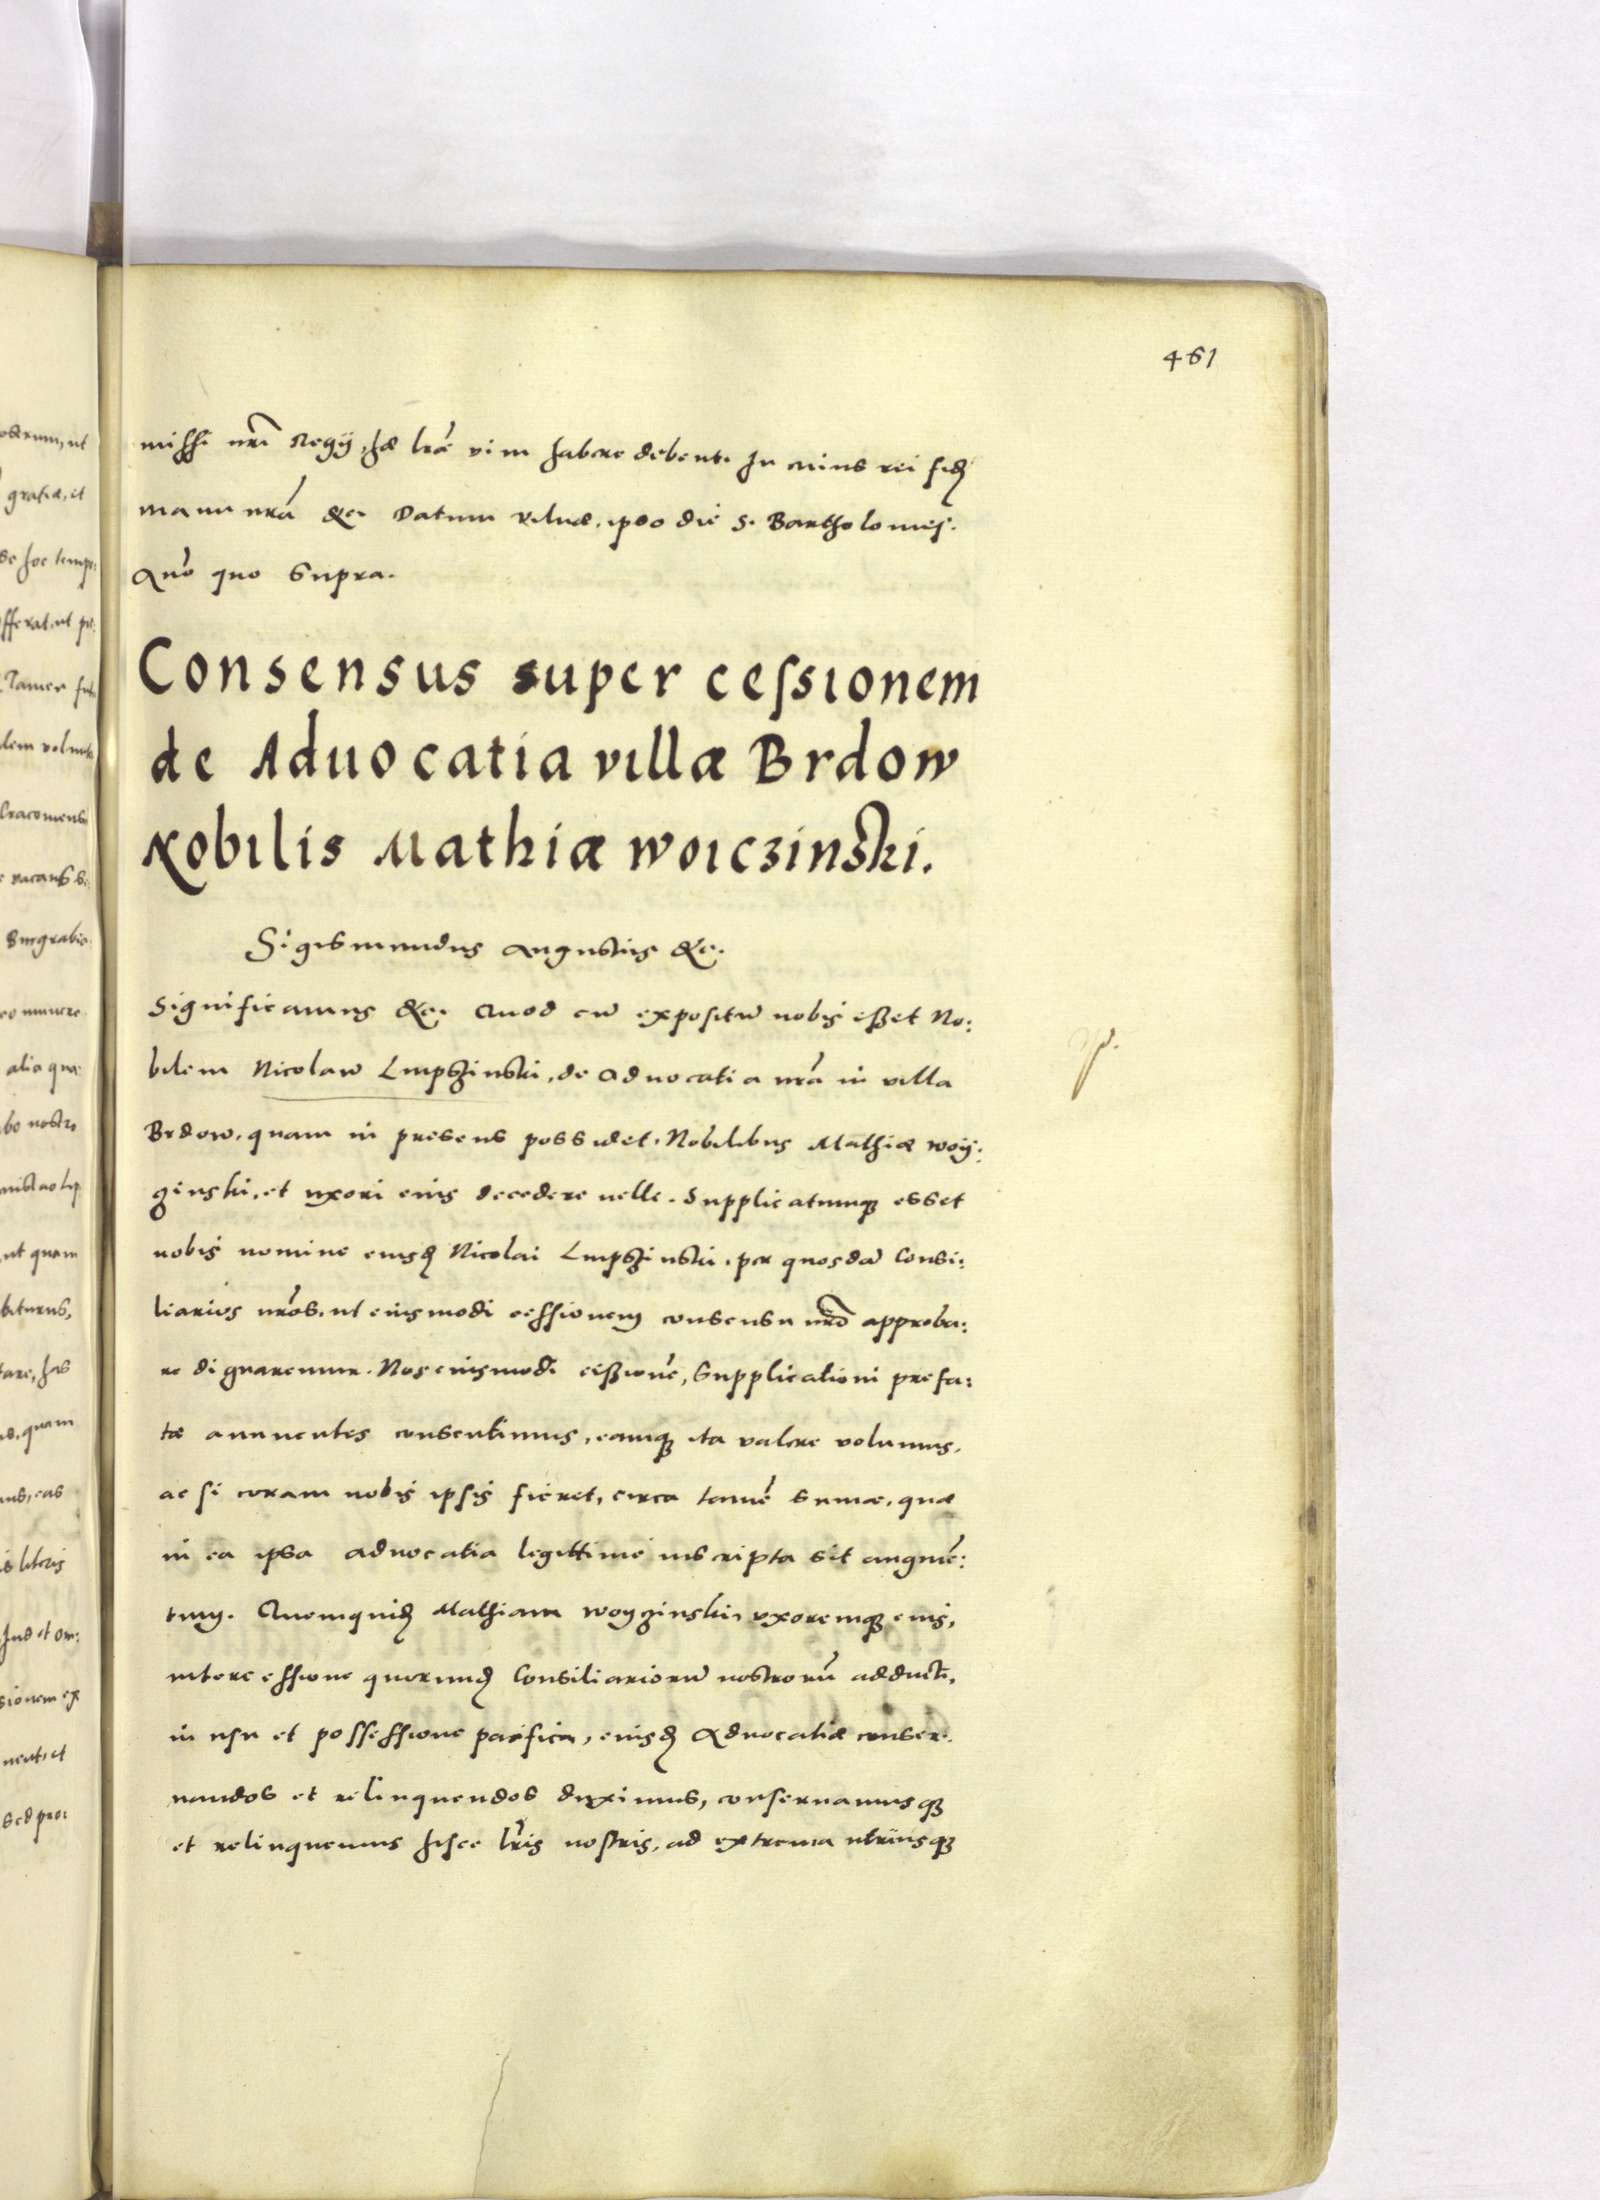 461
missi nrĩ Regÿ, hæ lræ vim habere debent. In cuius rei fidẽ
manu nrã &c. Datum Vilnæ, ipso die S. Bartholomej.
Anõ quo supra.
Consensus super ceſsionem
de Aduocatia villæ Brdow
Nobilis Mathiæ Woiczinski.
Sigismundus Augustus &c.
Significamus &c. Quod cũ expositũ nobis esset No:
bilem Nicolaũ Lupszinski, de Aduocatia nrã in villa
Brdow, quam in presens possidet, Nobilibus Mathiæ Woÿ:
zinski, et uxori eius decedere uelle. Supplicatumqȝ esset
nobis nomine eiusdẽ Nicolai Lupszinski, per quosdã Consi:
liarios nrõs, ut eiusmodi cessionem consensu nrõ approba:
re dignaremur. Nos eiusmodi cessionẽ, supplicationi prefa:
tæ annuentes consentimus, eamqȝ ita valere volumus,
ac si coram nobis ipsis fieret, circa tamẽ sumæ, quæ
in ea ipsa aduocatia legittime inscripta sit augmẽ:
tum. Quemquidẽ Mathiam Woyzinski, vxoremqȝ eius,
intercessione quorundẽ Consiliariorũ nostrorũ adducti,
in usu et possessione pacifica, eiusdẽ Aduocatiæ conser:
uandos et relinquendos duximus, conseruamusqȝ
et relinquemus hisce lrĩs nostris, ad extrema utriusqȝ